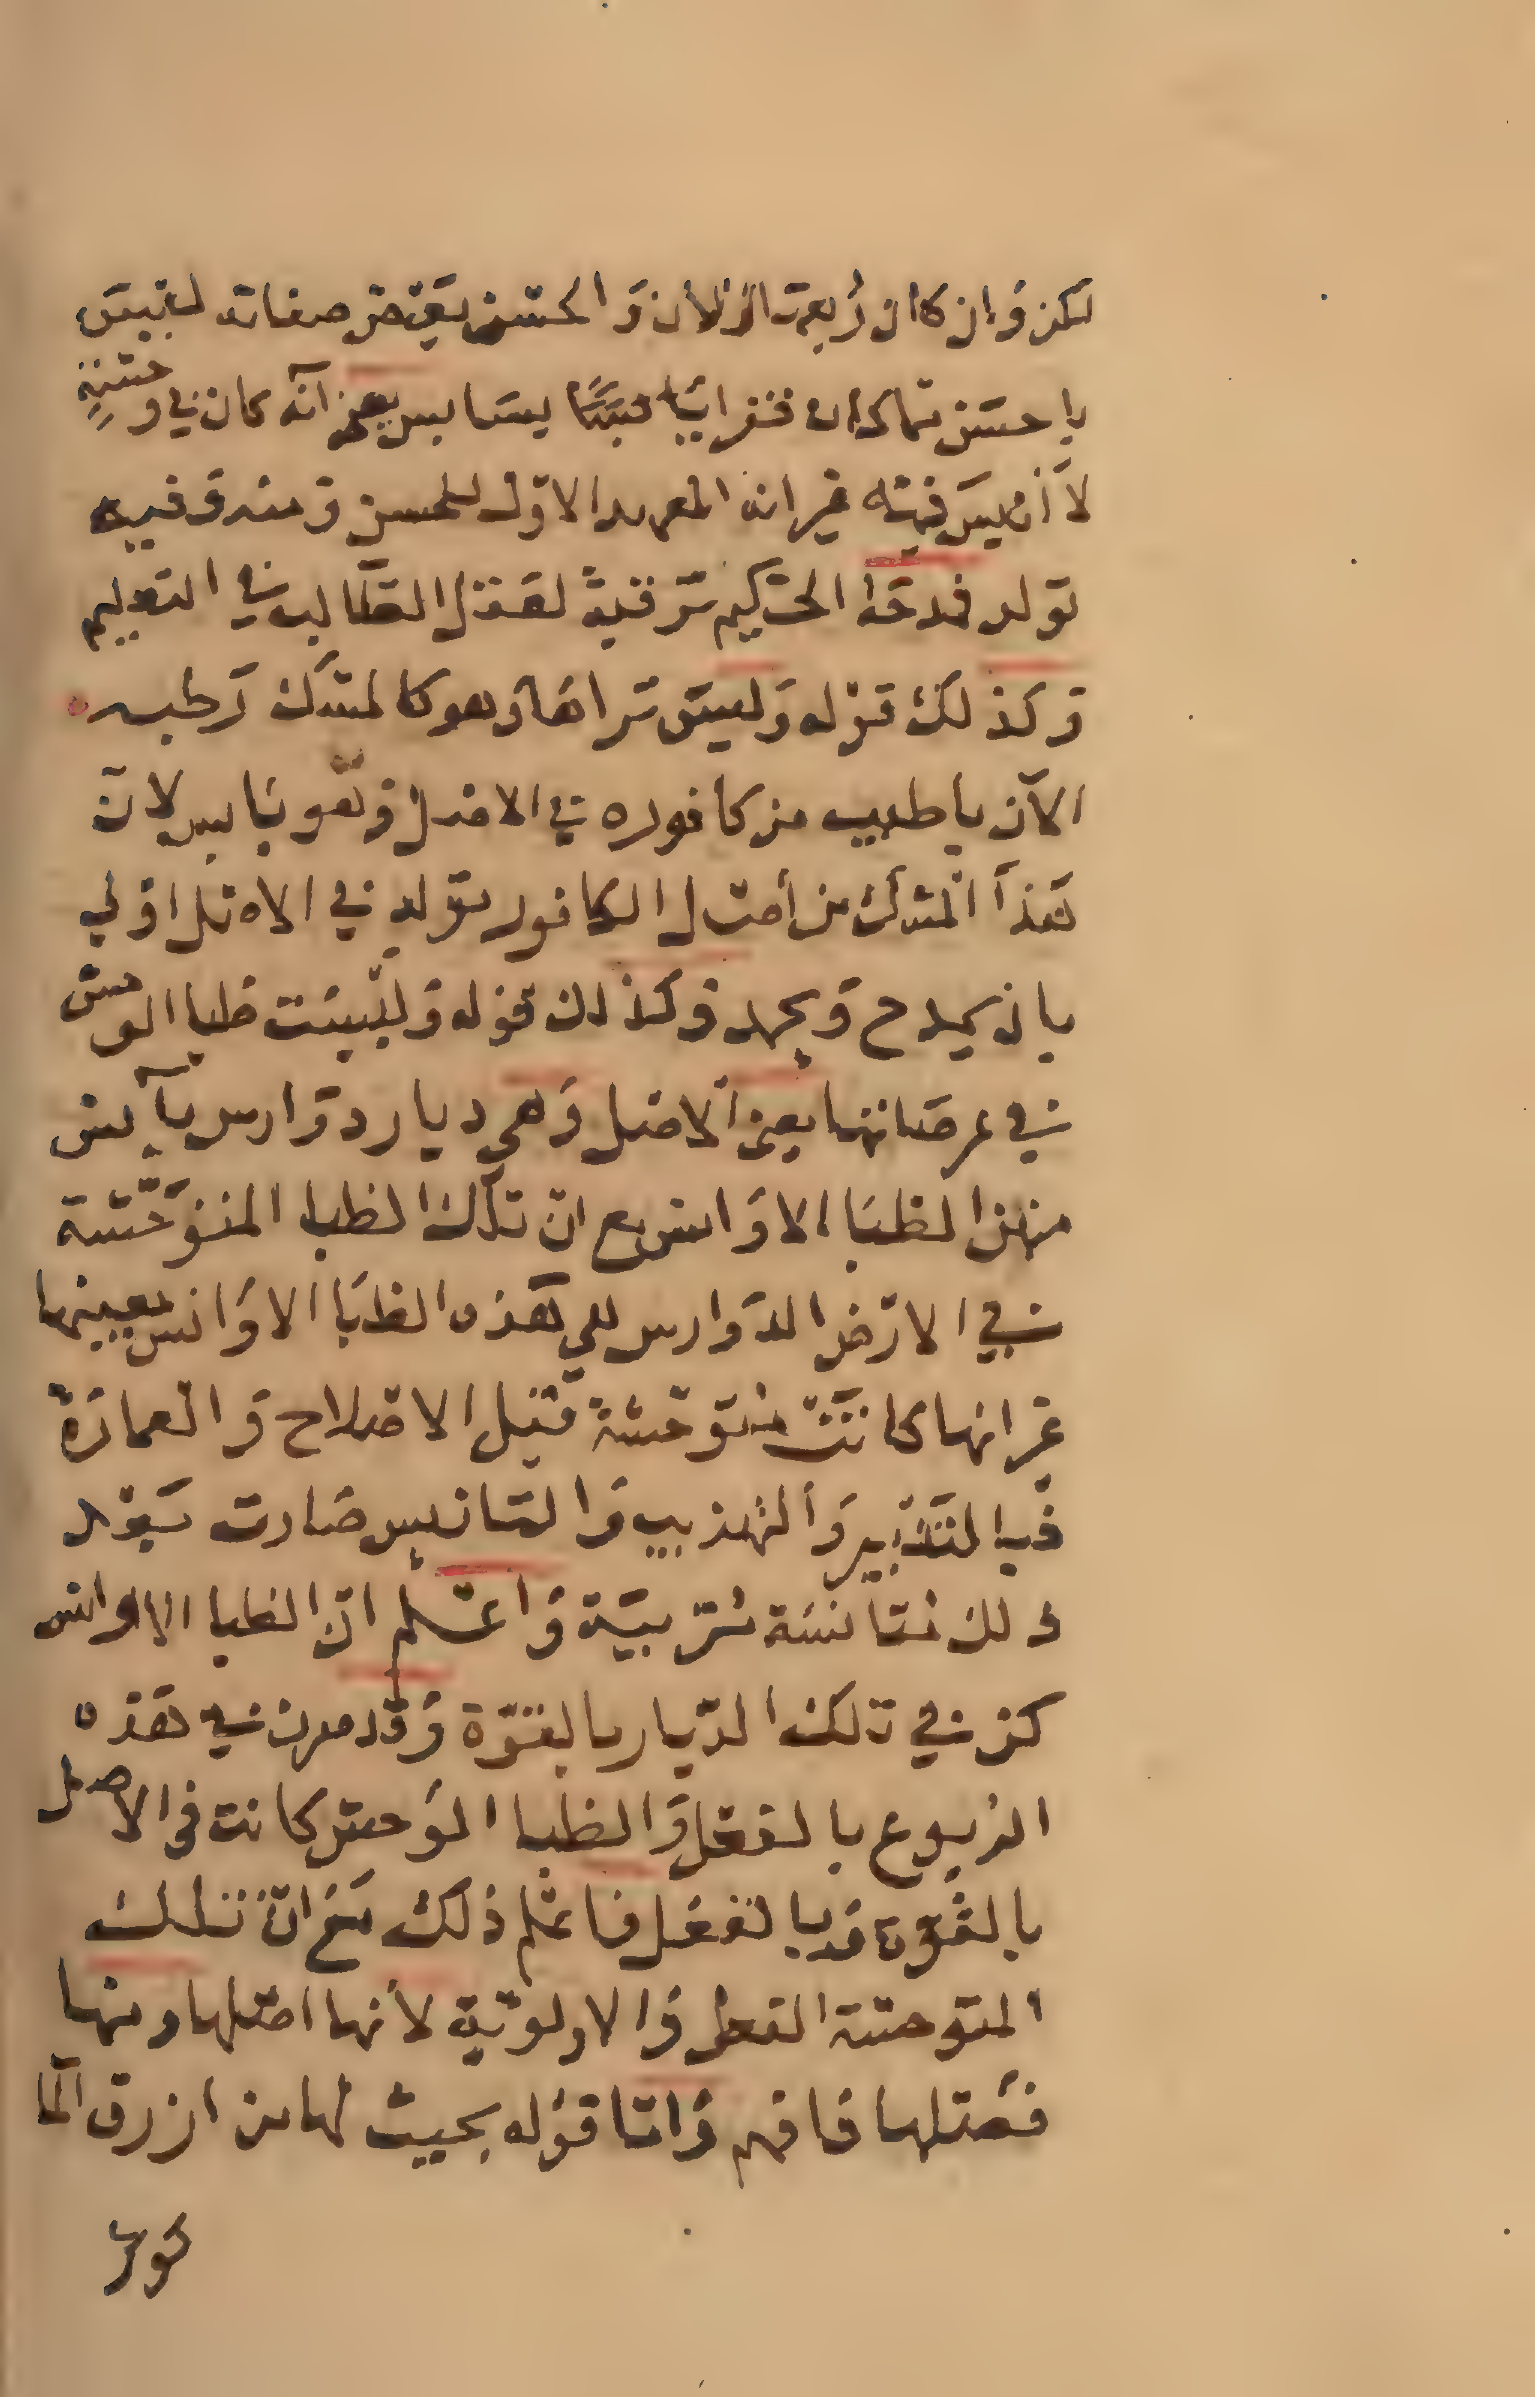 لكن وان كان ربعت الزلان والحسن بعض صفاته ليس
باحسن مما كان قفرايبا سبسبا يسابس يعني انه كان في وحشته
لا انيس فيه غير انه المعهد الاول للحسن ومنه وفيه
تولد فمدحه الحكيم ترقية لعقل الطالب في التعليم
وكذلك قوله وليس تراها وهو كالمسك رطبه
الآن باطيب من كافوره في الاصل وهو يابس لان
هذا المسك من اصل الكافور تولد في الاصل اولى
بان يمدح ويحمد وكذلك قوله وليست ظبا الوحش
في عرصاتها يعني الاصل وهي ديار دوارس بآنس
منهن الظبا الاوانس مع ان تلك الظبا المتوحشة
في الارض الدوارس هي هذه الظبا الاوانس بعينها
غير انها كانت متوحشة قبل الاصلاح والعمارة
فبالتدبير والتهذيب والتانيس صارت بعد
ذلك متانسة تربية واعلم ان الظبا الاوانس
كن في تلك الديار بالقوة وقد صرن في هذه
الربوع بالفعل والظبا الوحش كانت في الاصل
بالقوة وبالفعل فاعلم ذلك مع ان تلك
المتوحشة الفعل والاولوية لانها اصلها ومنها
فصلها فافهم واما قوله بحيث لها من ازرق الما
كوثر